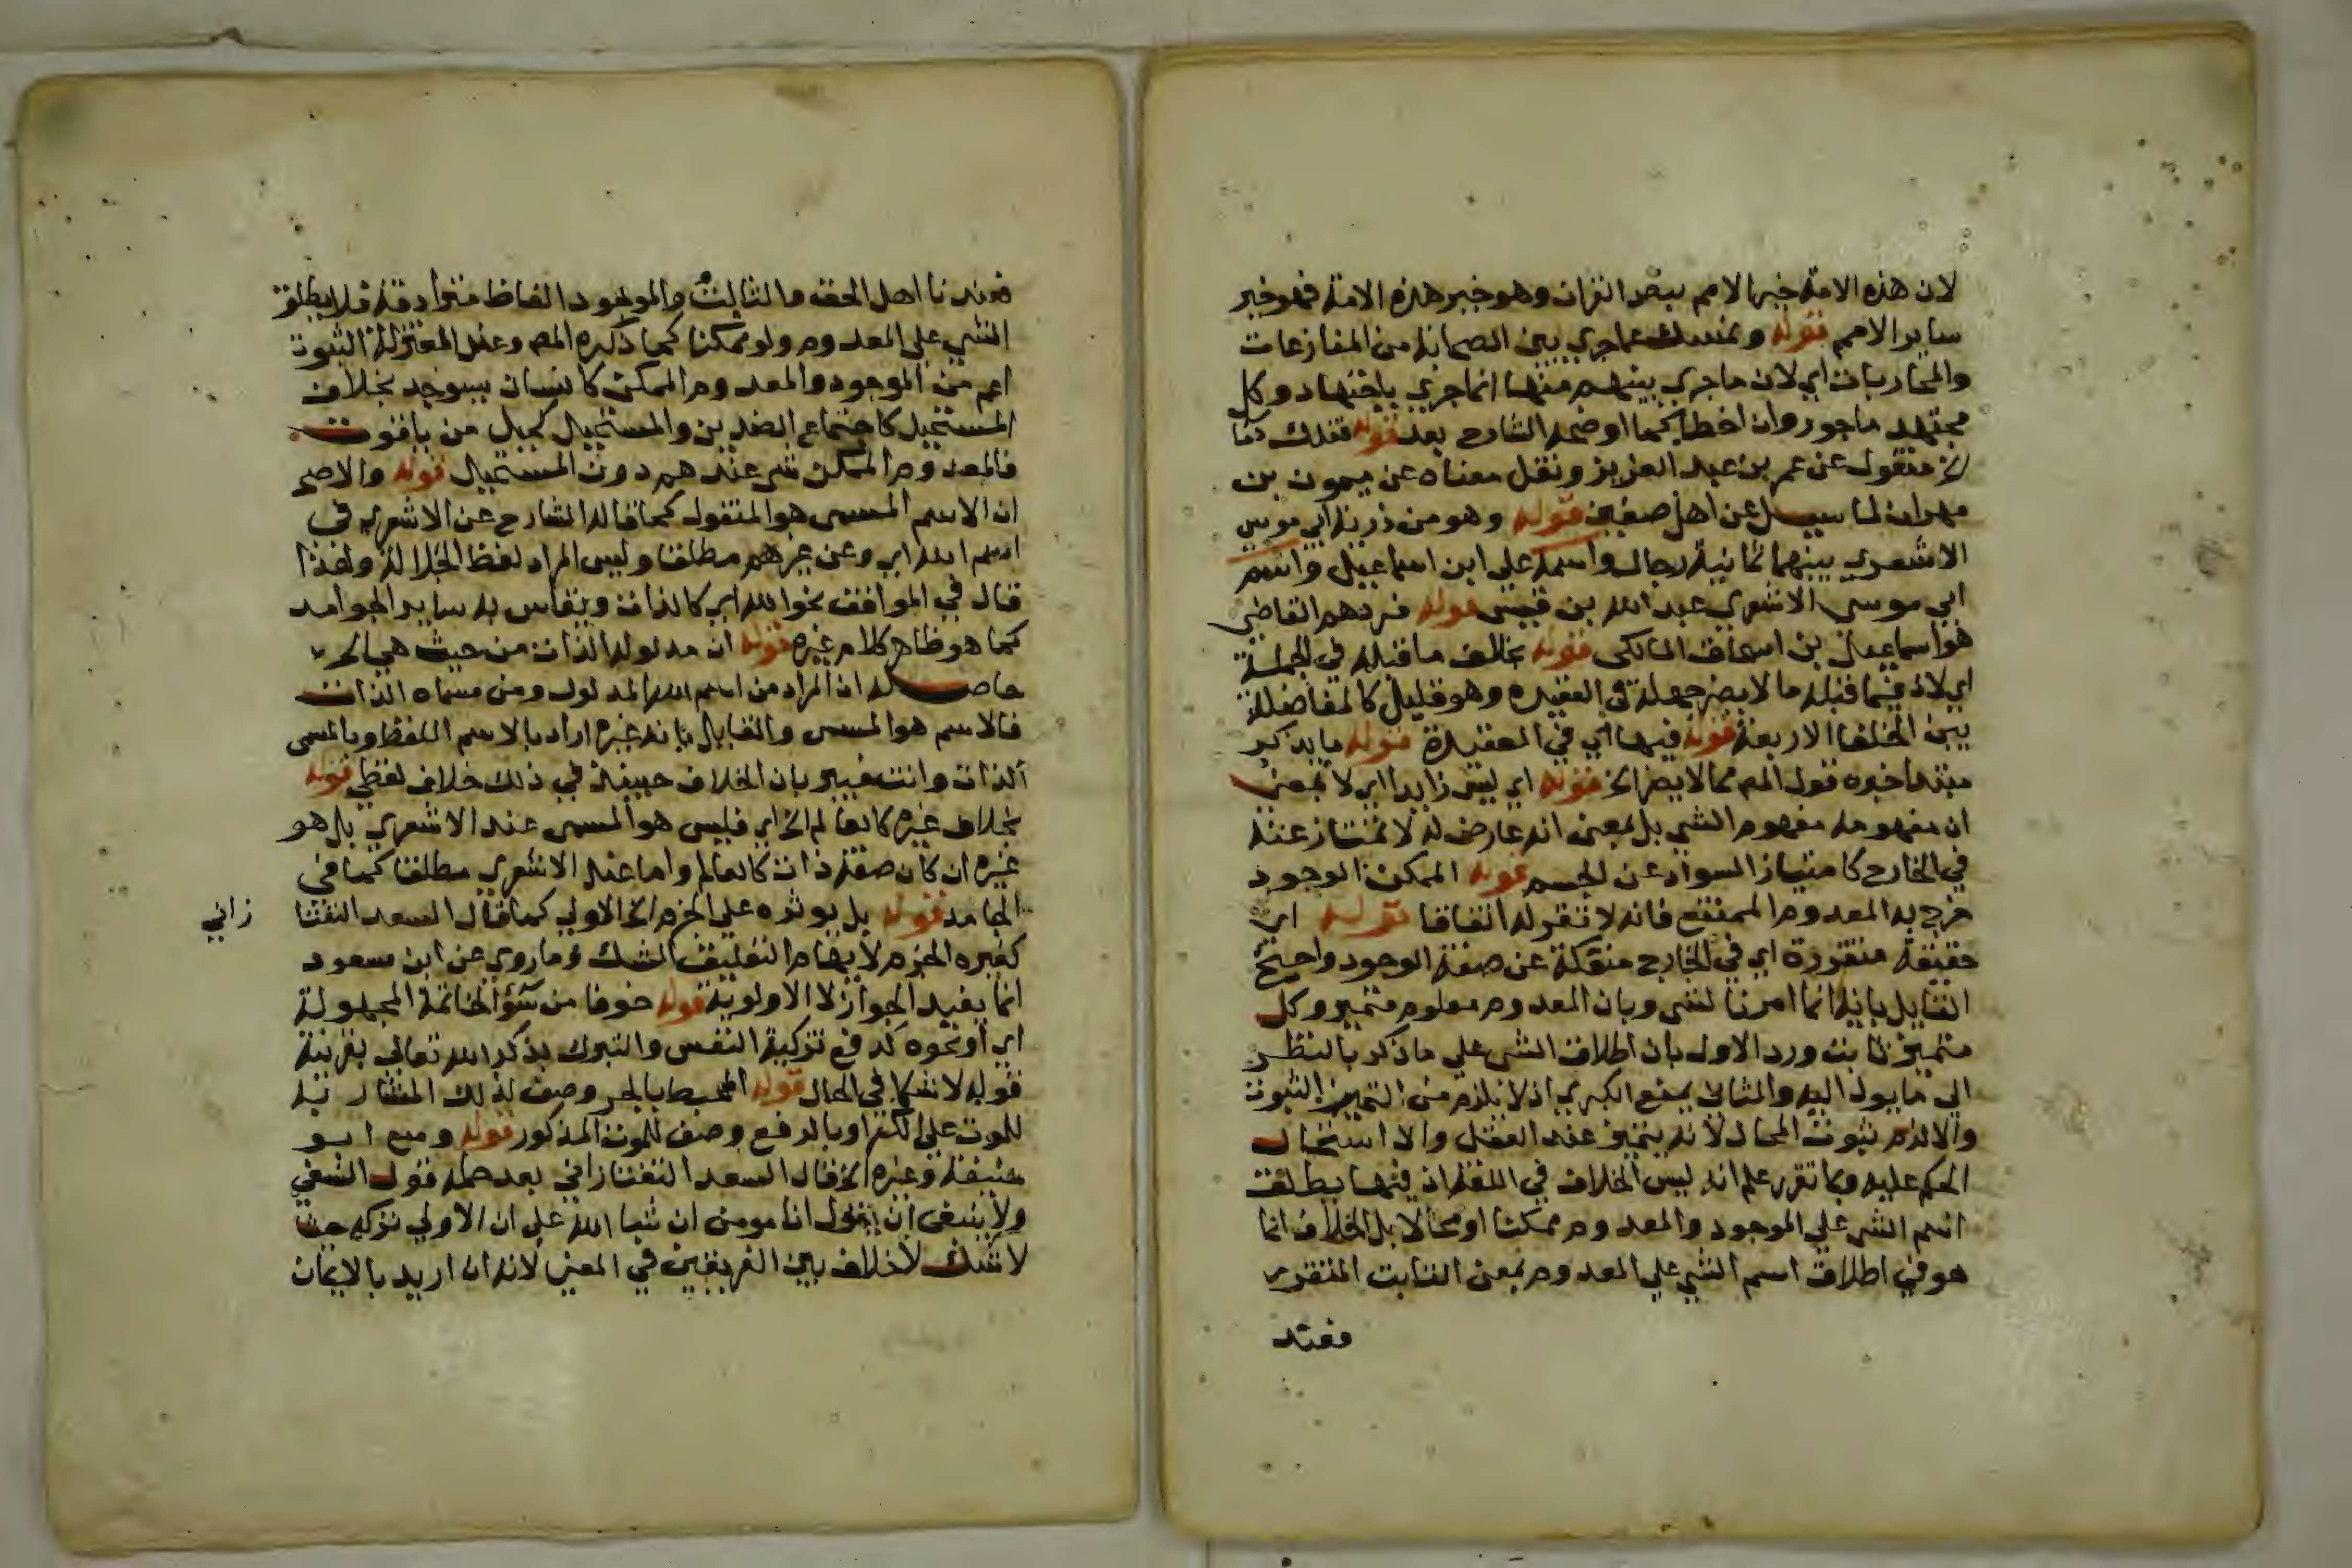 لان هذه الامة خير الامم بنص القران وهو خير هذه الامة فهو خير
ساير الامم قوله ونمسك عما جري بين الصحابة من المنازعات
والمحاربات اي لان ما جري بينهم منها انما جري باجتهاد وكل
مجتهد ماجور وان اخطا كما اوضحه الشارح بعد قوله فتلك دما
الخ منقول عن عمر بن عبد العزيز ونقل معناه عن ميمون بن
مهران لما سيل عن اهل صفين قوله وهو من ذرية ابي موسي
الاشعري بينهما ثمانية رجال واسمه علي ابن اسماعيل واسم
ابي موسي الاشعري عبد الله بن قيس قوله فردهم القاضي
هو اسماعيل بن اسحاق المالكي قوله بخلاف ما قبله في الجملة
اي لان فيما قبله ما لا يضر جهله في العقيدة وهو قليل كالمفاضلة
بين الخلفا الاربعة قوله فيها اي في العقيدة قوله ما يذكر
مبتدا خبره قول المص مما لا يضر الخ قوله اي ليس زايدا اي لا بمعني
ان مفهومه مفهوم الشي بل بمعني انه عارض له لا ممتاز عنه
في الخارج كامتياز السواد عن الجسم قوله الممكن الوجود
خرج به المعدوم الممتنع فانه لا تقرر له اتفاقا قوله اي
حقيقة متقررة اي في الخارج منفكة عن صفة الوجود واحتج
القايل بانه انما امرنا لشي وبان المعدوم معلوم متميز وكل
متميز ثابت ورد الاول بان اطلاق الشي علي ما ذكر بالنظر
الي ما يول اليه والثاني بمنع الكبري اذ لا يلزم من التميز الثبوت
والا لزم ثبوت المحال لانه يتميز عند العقل والا استحال
الحكم عليه وبما تقرر علم انه ليس الخلاف في اللغة اذ فيها يطلق
اسم الشي علي الموجود والمعدوم ممكنا او محالا بل الخلاف انما
هو في اطلاق اسم الشي علي المعدوم بمعني الثابت المتقرر
فعند
فعندنا اهل الحق والثابت والموجود الفاظ مترادفة فلا يطلق
الشي علي المعدوم ولو ممكنا كما ذكره المص وعند المعتزلة الثبوت
اعم من الموجود والمعدوم الممكن كانسان سيوجد بخلاف
المستحيل كاجتماع الضدين والمستحيل كجبل من ياقوت
فالمعدوم الممكن شي عندهم دون المستحيل قوله والاصح
ان الاسم المسمي هو المنقول كما قاله الشارح عن الاشعري في
اسم الله اي وعن غيرهم مطلقا وليس المراد لفظ الجلالة ولهذا
قال في المواقف نحو الله اي كالذات ويقاس به ساير الجوامد
كما هو ظاهر كلام غيره قوله ان مدلوله الذات من حيث هي الخ
حاصله ان المراد من اسم الله المدلول ومن مسماه الذات
فالاسم هو المسمي والقايل بانه غيره اراد بالاسم اللفظ وبالمسمي
الذات وانت خبير بان الخلاف حينيذ في ذلك خلاف لفظي قوله
بخلاف غيره كالعالم الخ اي فليس هو المسمي عند الاشعري بل هو
غيره ان كان صفة ذات كالعالم واما عند الاشعري مطلقا كما في
الجامد قوله بل يوثره علي الجزم الخ الاولي كما قال السعد التفتا
زاني
كغيره الجزم لايهام التعليق الشك وما روي عن ابن مسعود
انما يفيد الجواز لا الاولوية قوله خوفا من سؤ الخاتمة المجهولة
اي او نحوه كدفع تزكية النفس والتبرك بذكر الله تعالي بقرينة
قوله لا شكا في الحال قوله المحبط بالجر وصف لذلك المشار به
للموت علي الكفر او بالرفع وصف للموت المذكور قوله ومنع ابو
حنيفة وغيره الخ قال السعد التفتازاني بعد حمله قول النسفي
ولا ينبغي ان يقول انا مومن ان شا الله علي ان الاولي تركه حيث
لا شك لا خلاف بين الفريقين في المعني لانه ان اريد بالايمان